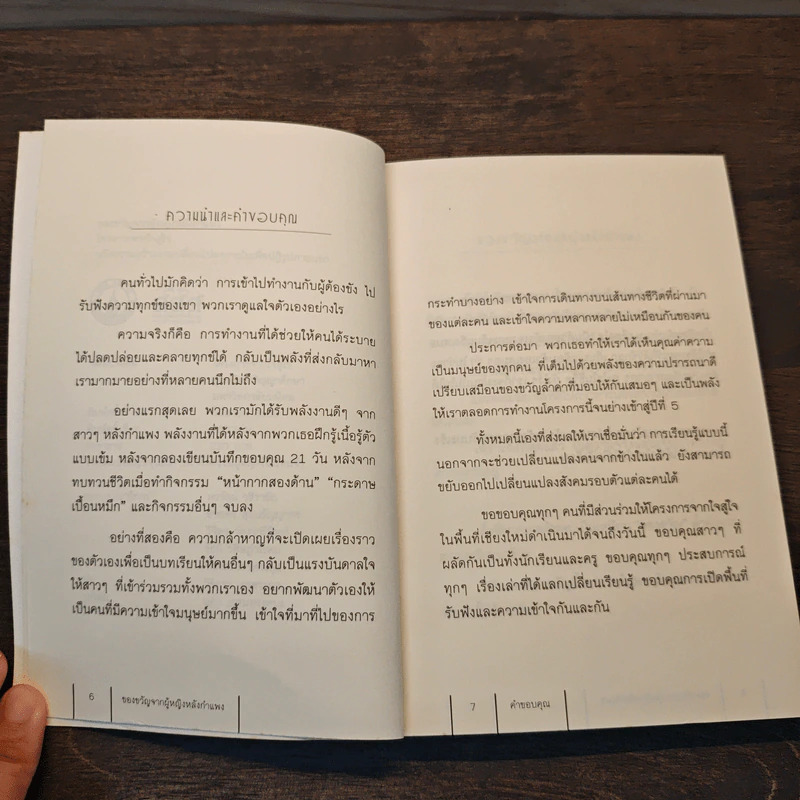 ความนำและคำขอบคุณ
คนทั่วไปมักคิดว่า การเข้าไปทำงานกับผู้ต้องขัง ไป
รับฟังความทุกข์ของเขา พวกเราดูแลใจตัวเองอย่างไร
ความจริงก็คือ การทำงานที่ได้ช่วยให้คนได้ระบาย
ได้ปลดปล่อยและคลายทุกข์ได้ กลับเป็นพลังที่ส่งกลับมาหา
เรามากมายอย่างที่หลายคนนึกไม่ถึง
อย่างแรกสุดเลย พวกเรามักได้รับพลังงานดีๆ จาก
สาวๆ หลังกำแพง พลังงานที่ได้หลังจากพวกเธอฝึกรู้เนื้อรู้ตัว
แบบเข้ม หลังจากลองเขียนบันทึกขอบคุณ 21 วัน หลังจาก
ทบทวนชีวิตเมื่อทำกิจกรรม “หน้ากากสองด้าน” “กระดาษ
เปื้อนหมึก” และกิจกรรมอื่นๆ จบลง
อย่างที่สองคือ ความกล้าหาญที่จะเปิดเผยเรื่องราว
ของตัวเองเพื่อเป็นบทเรียนให้คนอื่นๆ กลับเป็นแรงบันดาลใจ
ให้สาวๆ ที่เข้าร่วมรวมทั้งพวกเราเอง อยากพัฒนาตัวเองให้
เป็นคนที่มีความเข้าใจมนุษย์มากขึ้น เข้าใจที่มาที่ไปของการ
6 ของขวัญจากผู้หญิงหลังกำแพง
กระทำบางอย่าง เข้าใจการเดินทางบนเส้นทางชีวิตที่ผ่านมา
ของแต่ละคน และเข้าใจความหลากหลายไม่เหมือนกันของคน
ประการต่อมา พวกเธอทำให้เราได้เห็นคุณค่าความ
เป็นมนุษย์ของทุกคน ที่เต็มไปด้วยพลังของความปรารถนาดี
เปรียบเสมือนของขวัญล้ำค่าที่มอบให้กันเสมอๆ และเป็นพลัง
ให้เราตลอดการทำงานโครงการนี้จนย่างเข้าสู่ปีที่ 5
ทั้งหมดนี้เองที่ส่งผลให้เราเชื่อมั่นว่า การเรียนรู้แบบนี้
นอกจากจะช่วยเปลี่ยนแปลงคนจากข้างในแล้ว ยังสามารถ
ขยับออกไปเปลี่ยนแปลงสังคมรอบตัวแต่ละคนได้
ขอขอบคุณทุกๆ คนที่มีส่วนร่วมให้โครงการจากใจสู่ใจ
ในพื้นที่เชียงใหม่ดำเนินมาได้จนถึงวันนี้ ขอบคุณสาวๆ ที่
ผลัดกันเป็นทั้งนักเรียนและครู ขอบคุณทุกๆ ประสบการณ์
ทุกๆ เรื่องเล่าที่ได้แลกเปลี่ยนเรียนรู้ ขอบคุณการเปิดพื้นที่
รับฟังและความเข้าใจกันและกัน
7 คำขอบคุณ